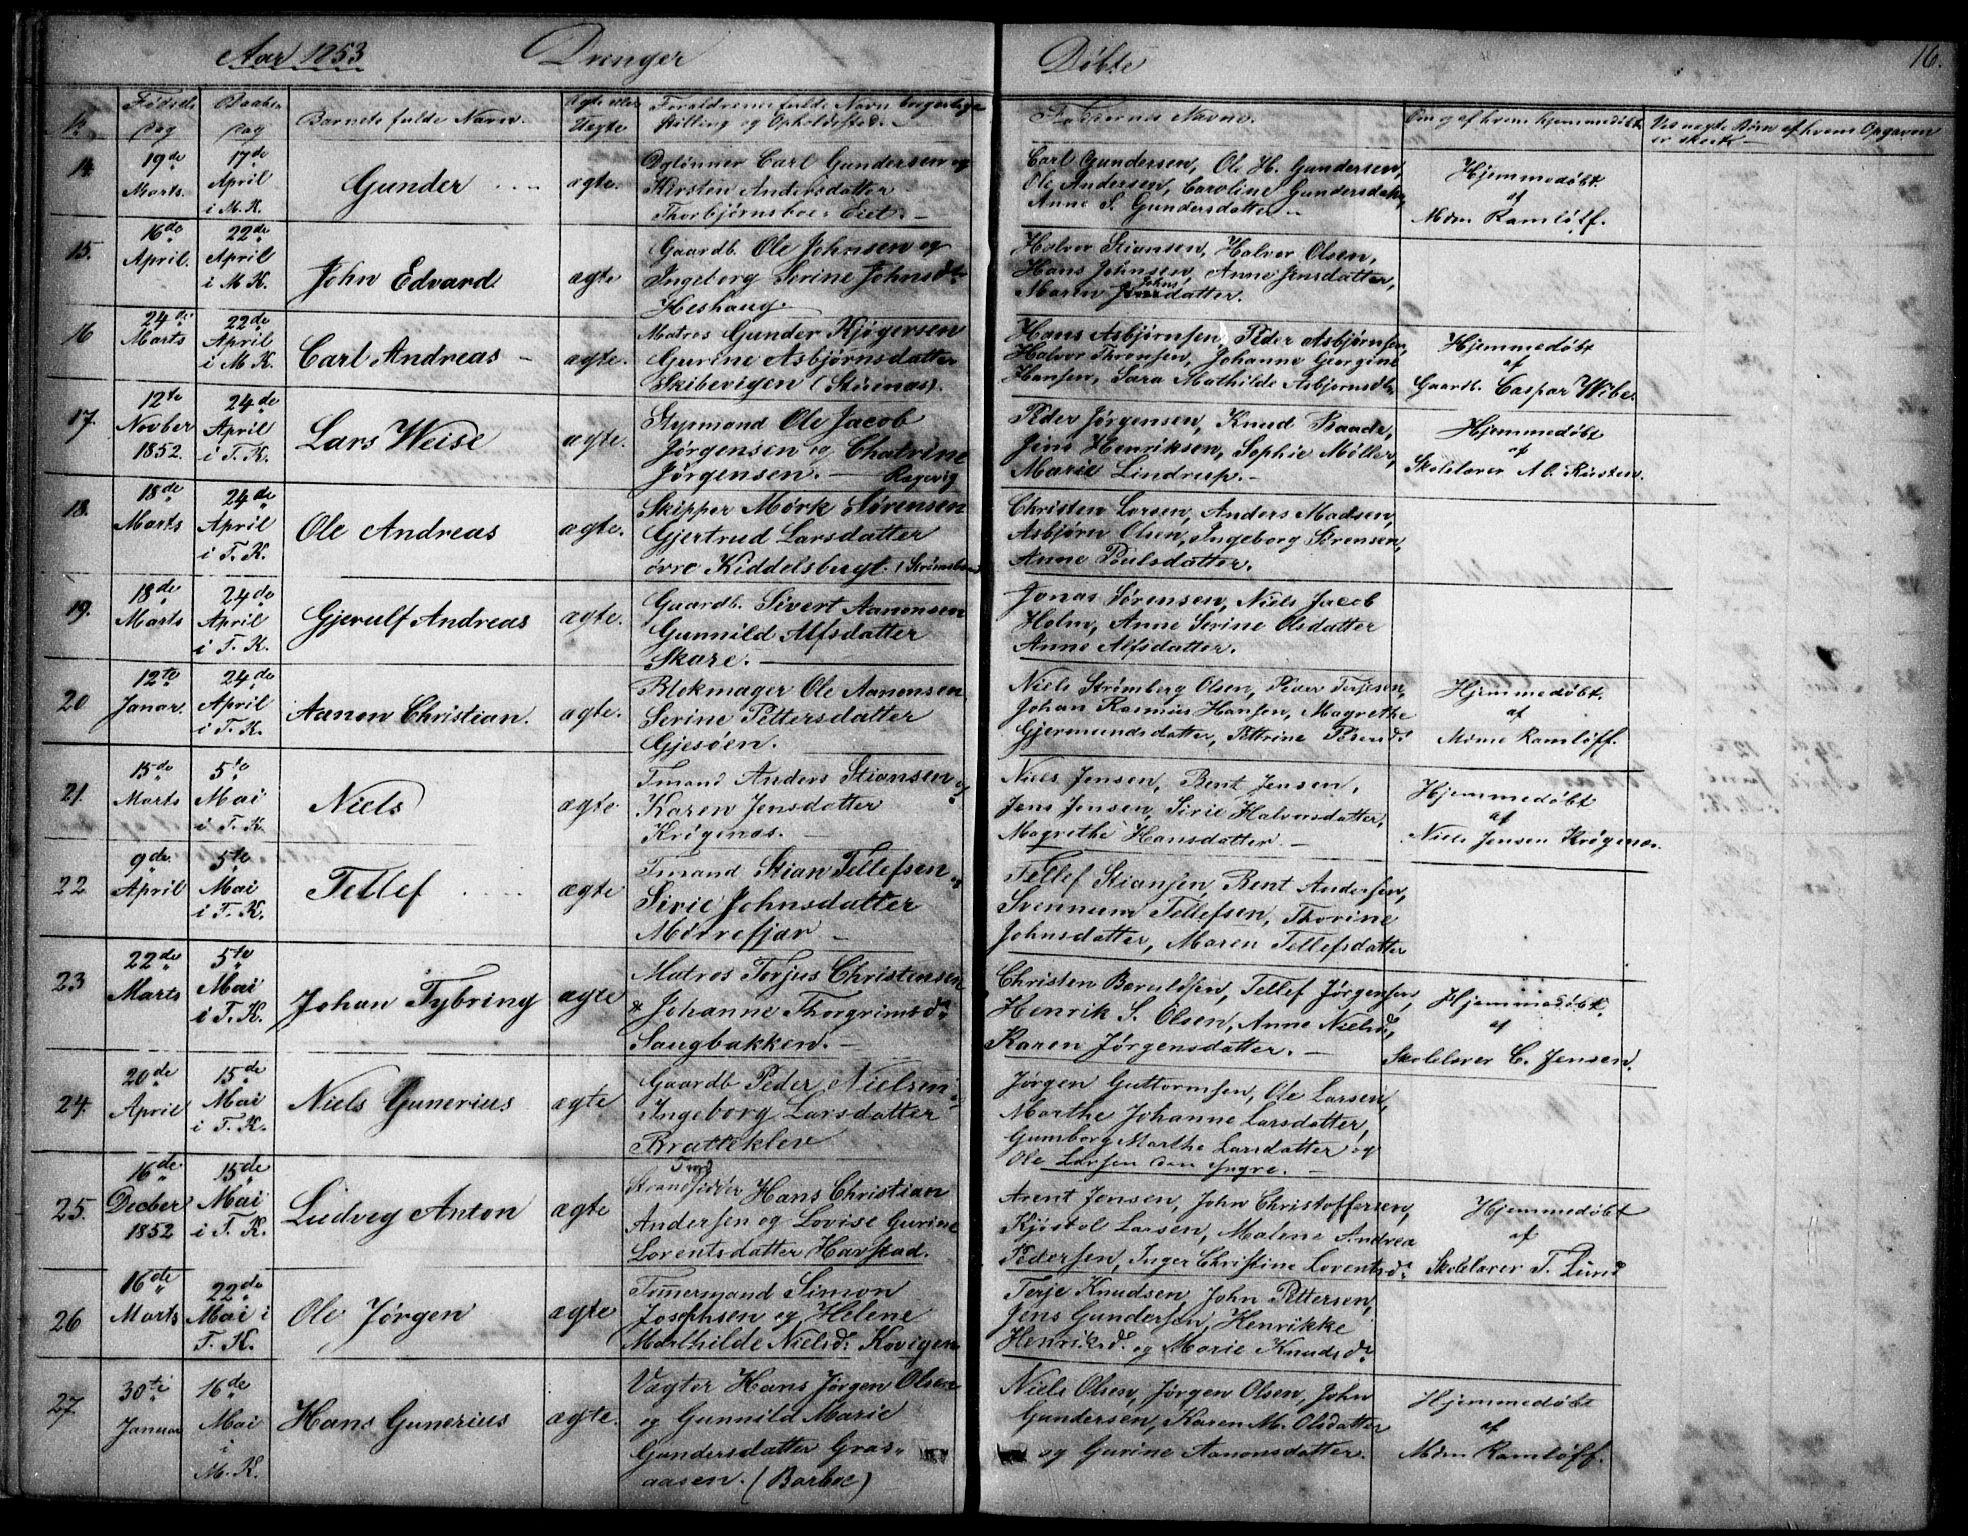 Aar 1853 Drenger Døbte 16.
No Fødsels Dag Daabs Dag Barnets fulde Navn. Ægte eller Uægte Forældrenes fulde Navn borgerlige Stilling og Opholdssted. Faddernes Navne. Om og af hvem hjemmedøbt Ved uægte Børn af hvem Opgaven er skeet
14 19de Marts. 17de April i M. K. Gunder ægte.
Carl Gundersen og
Kirsten Andersdatter
Thorbjørnsboe Eiet. –
Carl Gundersen, Ole H. Gundersen,
Ole Andersen, Caroline Gundersdatter,
Anne S. Gundersdatter –
Hjemmedøbt
af
Mdm Ramløff.
15. 16de April. 22de April i M. K. John Edvard ægte
Gaardb. Ole Johnsen og
Ingeborg Serine Johnsdr
Heshaug.
Halvor Stiansen, Halvor Olsen,
Hans Johnsen, Anne Jensdatter,
Maren Johnsdatter.
16 24de Marts 22de April i M. K. Carl Andreas – ægte.
Matros Gunder Kjøgersen
Gurine Asbjørnsdatter
Skibevigen (Stirinæs).
Hans Asbjørnsen, Peder Asbjørnsen,
Halvor Thronsen, Johanne Georgine
Hansen, Sara Mathilde Asbjørnsdr
Hjemmedøbt
af
Gaardb. Caspar Wibe.
17. 12te Novber 1852. 24de April i T. K. Lars Weise ægte.
Styrmand Ole Jacob
Jørgensen og Chatrine
Jørgensen. – Ragevig
Peder Jørgensen, Knud Baade,
Jens Henriksen, Sophie Møller,
Marie Lindrup. –
Hjemmedøbt
af
Skolelærer A. O.
18. 18de Marts 24de April i T. K. Ole Andreas ægte.
Skipper Mørk Sørensen
Gjertrud Larsdatter
øvre Kiddelsbergt.
Christen Larsen, Anders Madsen,
Asbjørn Olsen, Ingeborg Sørensen,
Anne Poulsdatter.
19. 18de Marts 24de April i T. K. Gjerulf Andreas ægte.
Gaardb. Sivert Aanonsen
Gunnild Alfsdatter
Skare. –
Jonas Sørensen, Niels Jacob
Holm, Anne Serine Olsdatter
Anne Alfsdatter.
20 12te Januar. 24de April i T. K. Aanon Christian. ægte.
Blokmager Ole Aanonsen
Serine Pettersdatter
Gjesøen.
Niels Strømberg Olsen, Peder Terjesen,
Johan Rasmus Hansen, Magrethe
Gjermundsdatter, Pettrine
Hjemmedøbt
af
Mdme Ramløff.
21. 15de Marts 5te Mai i T. K. Niels ægte
Tmand Anders Stiansen og
Karen Jensdatter
Krøgenæs. –
Niels Jensen, Bent Jensen,
Jens Jensen, Sirie Halvorsdatter,
Magrethe Hansdatter. –
Hjemmedøbt
af
Niels Jensen Krøgenæs.
22 9de April 5te Mai i T. K. Tellef ægte
Tmand Stian Tellefsen og
Sirie Johnsdatter
Mørrefjær –
Tellef Stiansen, Bent Andersen,
Svennum Tellefsen, Thorine
Johnsdatter, Maren Tellefsdatter
23 22de Marts 5te Mai i T. K. Johan Tybring ægte
Matros Torjus Christensen
& Johanne Thorgrimsdr
Saugbakken. –
Christen Baruldsen, Tellef Jørgensen,
Henrik S. Olsen, Anne Nielsdr,
Karen Jørgensdatter. –
Hjemmedøbt
af
Skolelærer C. Jensen.
24. 20de April 15de Mai i T. K. Niels Gunerius ægte
Gaardb Peder Nielsen
Ingeborg Larsdatter
Bratteklev
Jørgen Guttormsen, Ole Larsen,
Marthe Johanne Larsdatter,
Gumborg Marthe Larsdatter og
Ole Larsen den Yngre. –
25. 16de Decber 1852 15de Mai i T. K. Ludveg Anton ægte
Strandsidder Hans Christian
Andersen og Lovise Gurine
Lorentsdatter Havstad.
Arent Jensen, John Christoffersen,
Kjøstol Larsen, Malene Andrea
Pedersen, Inger Christine Lorentsdr
Hjemmedøbt
af
Skolelærer T. Lund
26 16de Marts 22de Mai i T. K. Ole Jørgen ægte
Tømermand Simon
Josephsen og Helene
Mathilde Nielsdr Kovigen
Terje Knudsen, John Pettersen,
Jens Gundersen, Henrikke
Henriksdr og Marie Knudsdr
27. 30te Januar 16de Mai i M. K. Hans Gunerius ægte.
Vægter Hans Jørgen Olsen
og Gunnild Marie
Gundersdatter Græs-
aasen. (Barboe)
Niels Olsen, Jørgen Olsen, John
Gundersen, Karen M. Olsdatter
og Gurine Aanonsdatter.
Hjemmedøbt
af
Mdm Ramløff.